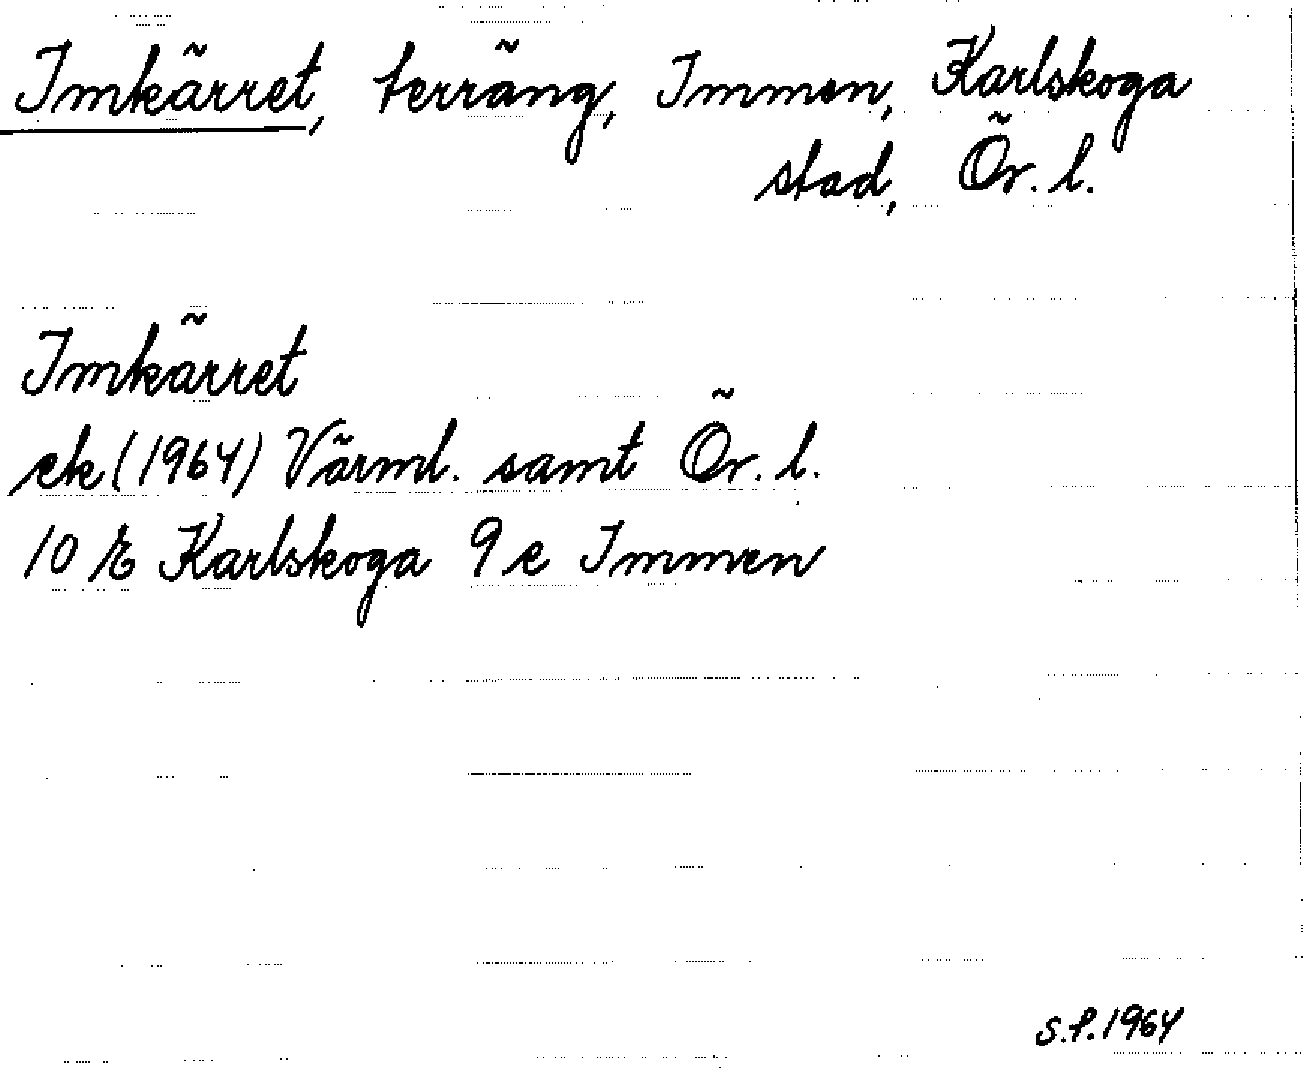 Imkärret, terräng, Immen, Karlskoga
stad, Ör. l.
Imkärret
ek (1964) Värml. samt Ör. l.
10 E Karlskoga 9 e Immen
S.P. 1964